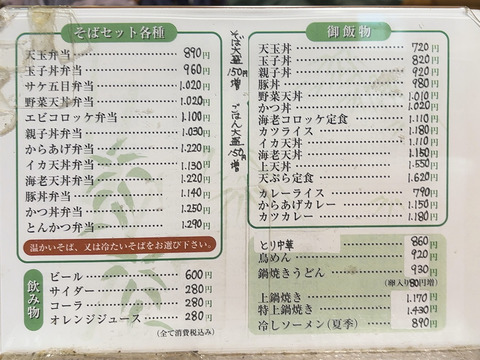 そばセット各種
天玉弁当 890円
玉子丼弁当 960円
サケ五目弁当 1.020円
野菜天丼弁当 1.020円
エビコロッケ弁当 1.100円
親子丼弁当 1.030円
からあげ弁当 1.220円
イカ天丼弁当 1.130円
海老天丼弁当 1.220円
豚丼弁当 1.140円
かつ丼弁当 1.250円
とんかつ弁当 1.290円
温かいそば、又は冷たいそばをお選び下さい。
飲み物
ビール 600円
サイダー 280円
コーラ 280円
オレンジジュース 280円
(全て消費税込み)
そば大盛150円増
ごはん大盛150円増
御飯物
天玉丼 720円
玉子丼 820円
親子丼 920円
豚丼 980円
野菜天丼 1.010円
かつ丼 1.020円
海老コロッケ定食 1.110円
カツライス 1.180円
イカ天丼 1.110円
海老天丼 1.150円
上天丼 1.550円
天ぷら定食 1.620円
カレーライス 790円
からあげカレー 1.150円
カツカレー 1.180円
とり中華 860円
鳥めん 920円
鍋焼きうどん 930円
(卵入り80円増)
上鍋焼き 1.170円
特上鍋焼き 1.430円
冷しソーメン(夏季) 890円